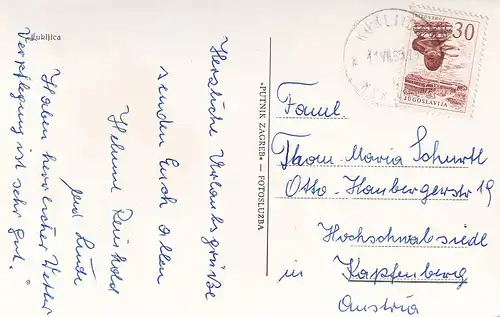 Kukljica
Herzliche Urlaubsgrüße
senden Euch allen
Helmut Reinhold
und Linde
Haben herrliches Wetter
Verpflegung ist sehr gut.
»PUTNIK ZAGREB« — FOTOSLUZBA
KUKLJICA
JUGOSLAVIJA
30
JUGOSLAVIJA
Faml.
Thom. Maria Schurtl
Otto-Hauberger str 19
Hochschwabsiedl
in Kapfenberg
Austria